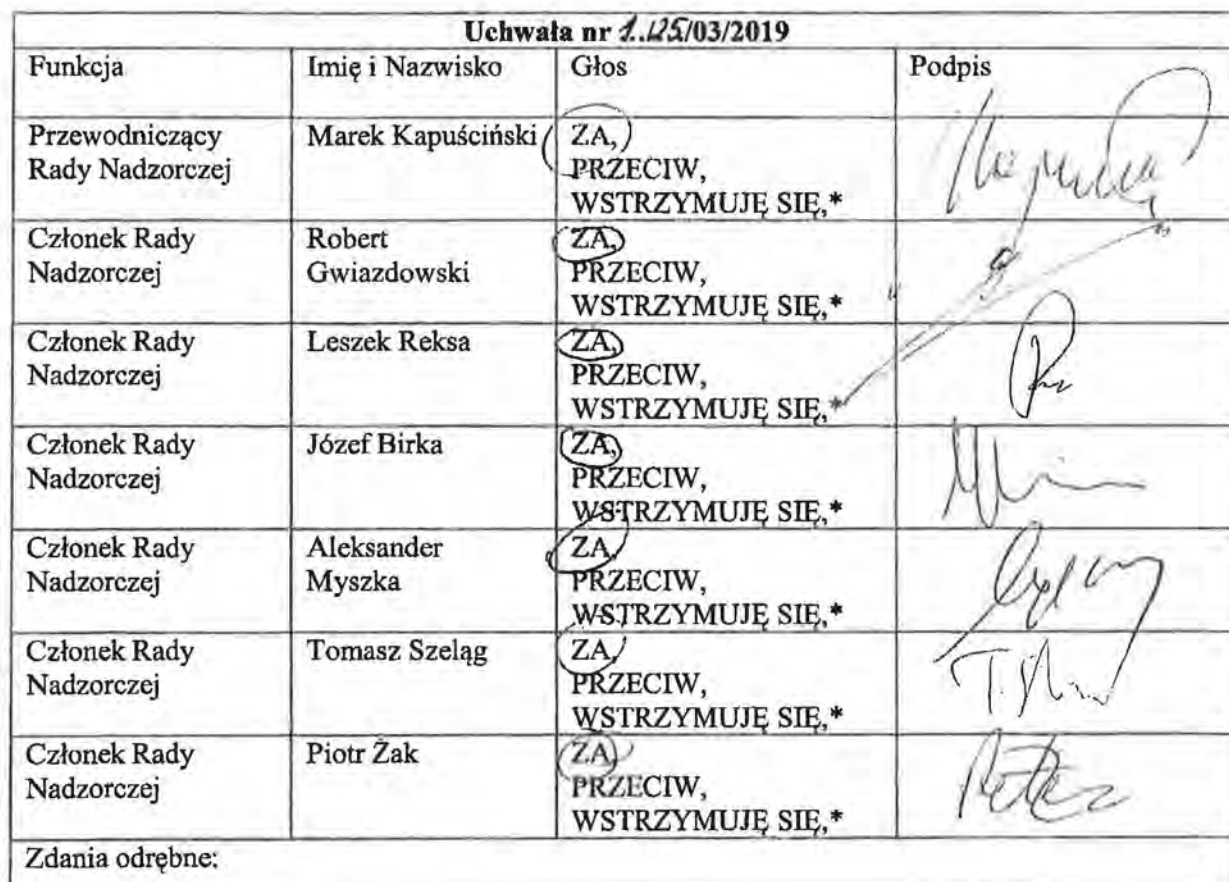 Uchwała nr 1../25/03/2019
Funkcja Imię i Nazwisko Głos Podpis
Przewodniczący Rady Nadzorczej Marek Kapuściński ZA,
PRZECIW,
WSTRZYMUJĘ SIĘ,*
Członek Rady Nadzorczej Robert Gwiazdowski ZA,
PRZECIW,
WSTRZYMUJĘ SIĘ,*
Członek Rady Nadzorczej Leszek Reksa ZA,
PRZECIW,
WSTRZYMUJĘ SIĘ,*
Członek Rady Nadzorczej Józef Birka ZA,
PRZECIW,
WSTRZYMUJĘ SIĘ,*
Członek Rady Nadzorczej Aleksander Myszka ZA,
PRZECIW,
WSTRZYMUJĘ SIĘ,*
Członek Rady Nadzorczej Tomasz Szeląg ZA,
PRZECIW,
WSTRZYMUJĘ SIĘ,*
Członek Rady Nadzorczej Piotr Żak ZA,
PRZECIW,
WSTRZYMUJĘ SIĘ,*
Zdania odrębne: